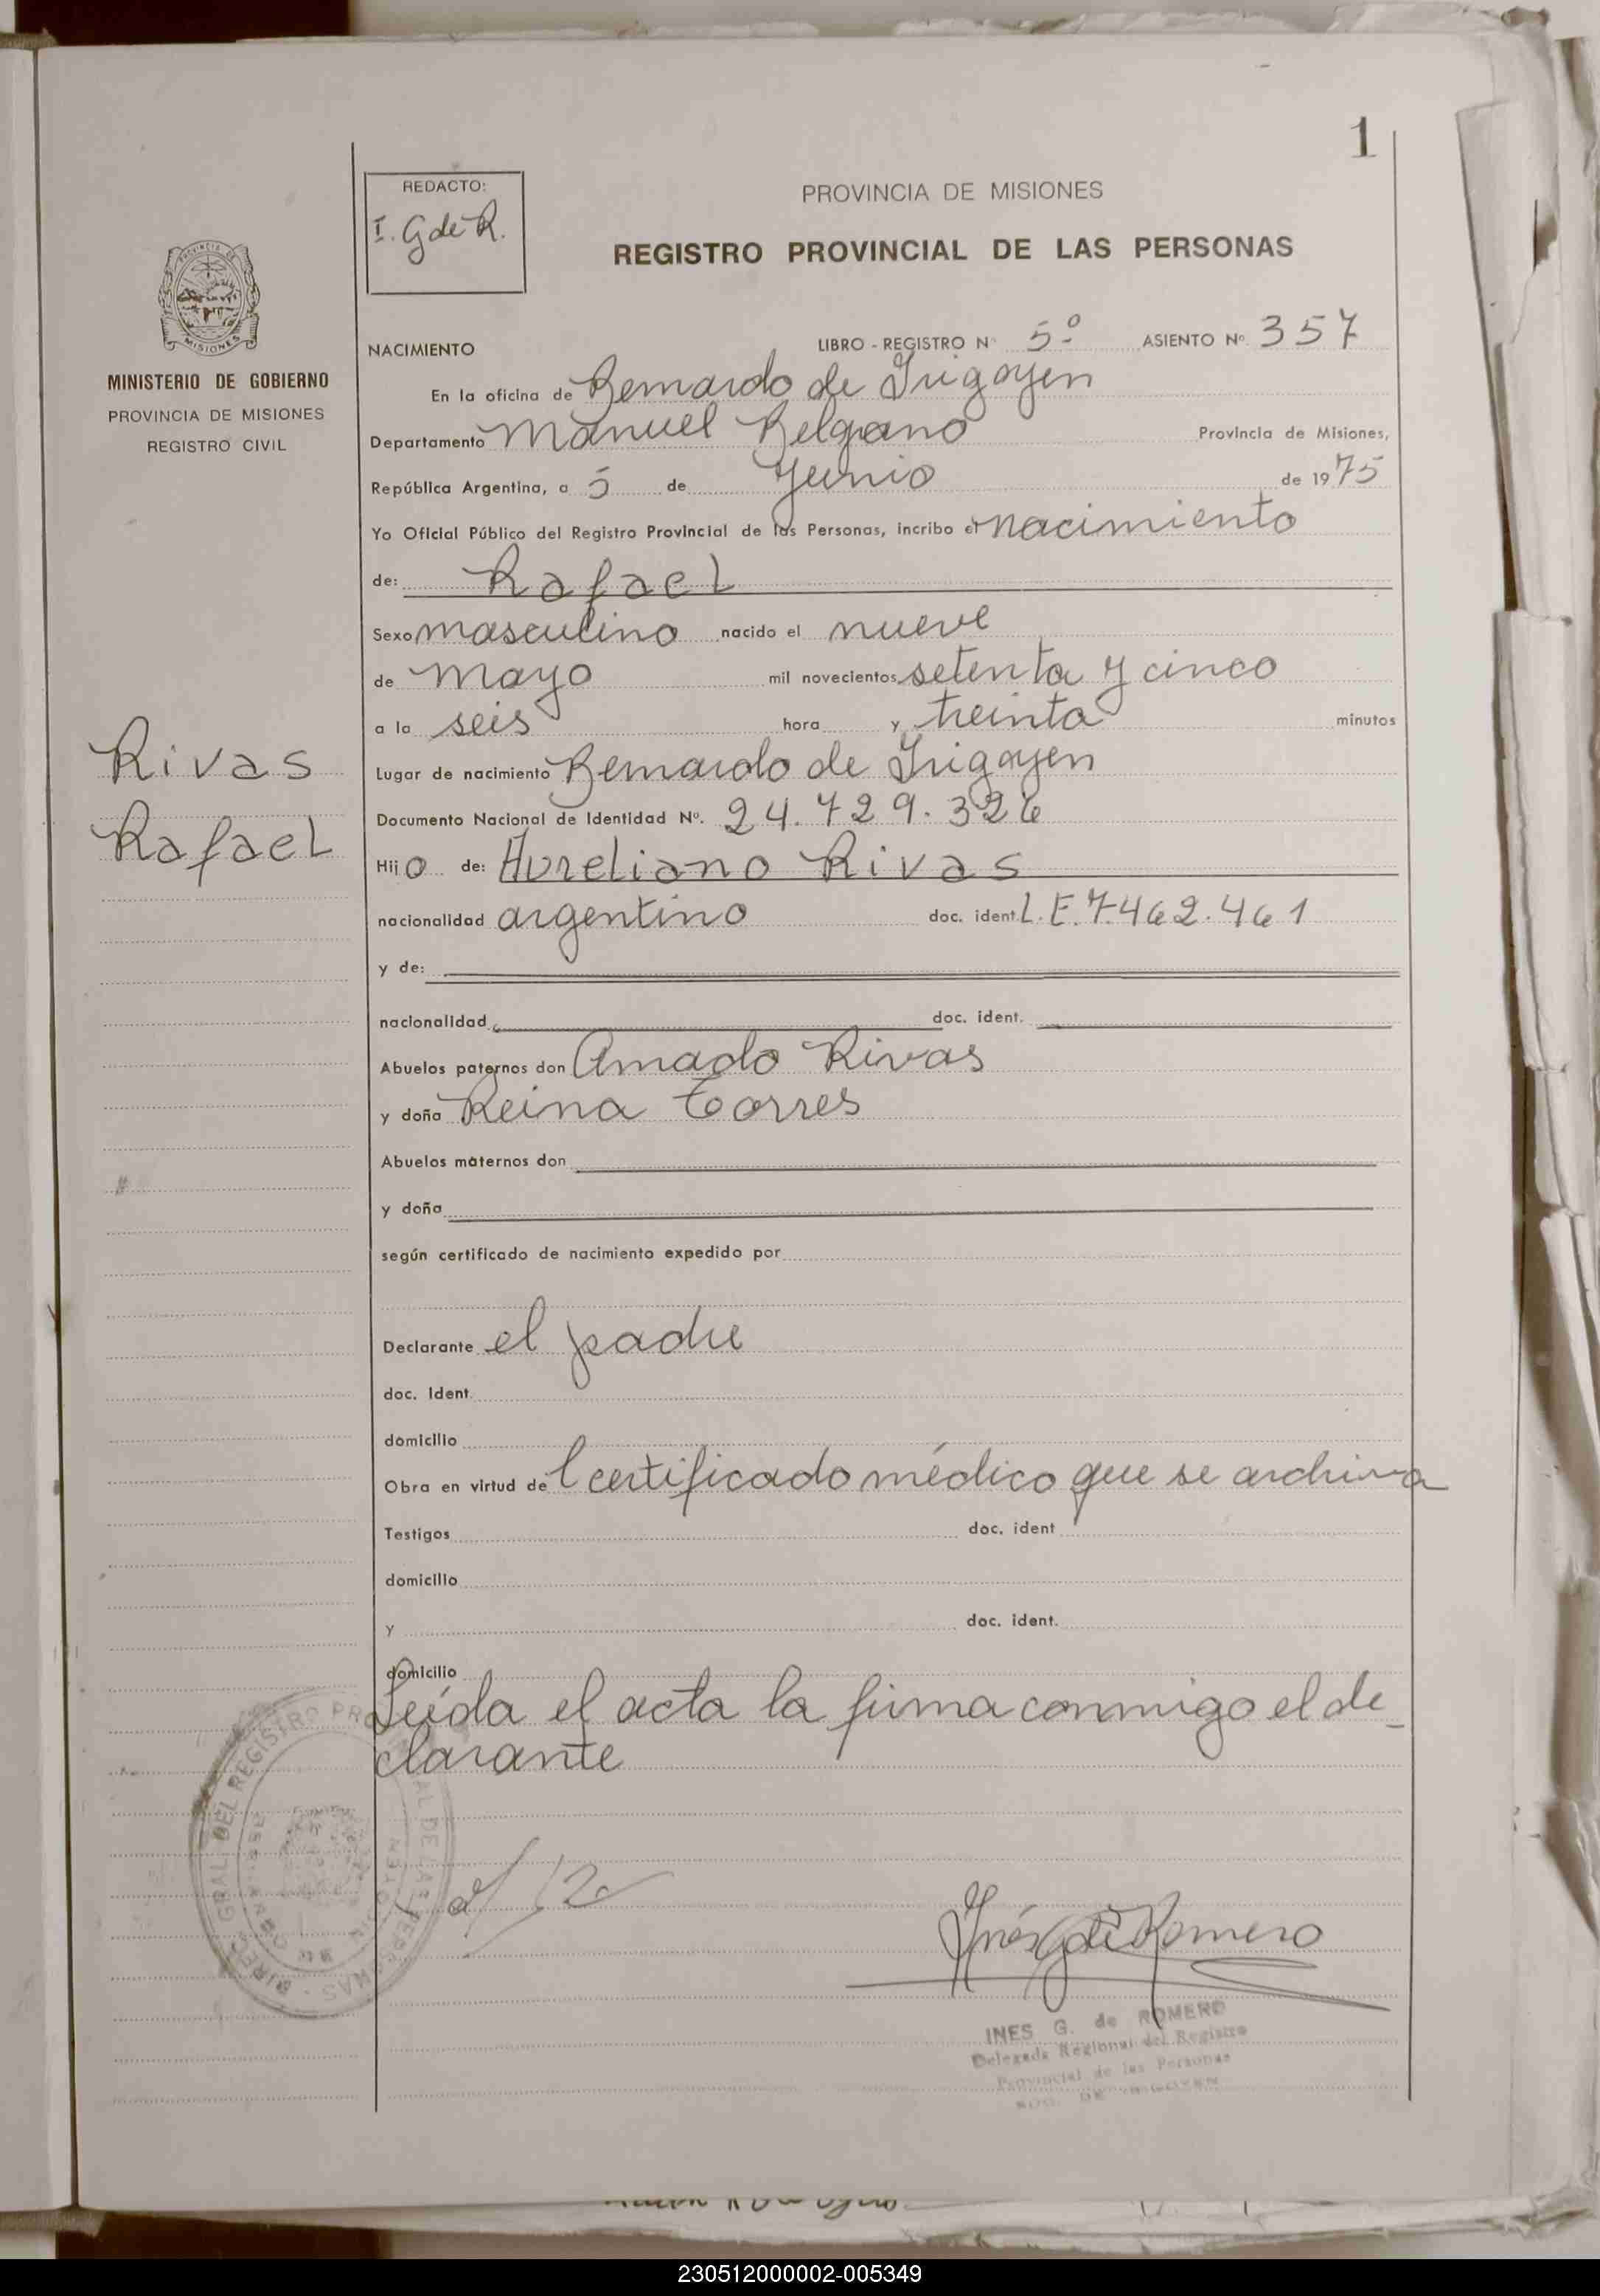 1
REDACTO:
I. G de R.
PROVINCIA DE MISIONES
REGISTRO PROVINCIAL DE LAS PERSONAS
MINISTERIO DE GOBIERNO
PROVINCIA DE MISIONES
REGISTRO CIVIL
NACIMIENTO
LIBRO - REGISTRO Nº 5º ASIENTO Nº 357
En la oficina de Bernardo de Irigoyen
Departamento Manuel Belgrano Provincia de Misiones,
República Argentina, a 5 de Junio de 1975
Yo Oficial Público del Registro Provincial de las Personas, incribo el nacimiento
de: Rafael
Sexo masculino nacido el nueve
de mayo mil novecientos setenta y cinco
a la seis hora y treinta minutos
Rivas
Rafael
Lugar de nacimiento Bernardo de Irigoyen
Documento Nacional de Identidad Nº. 24.729.326
Hijo de: Aureliano Rivas
nacionalidad argentino doc. ident. L.E. 7.462.461
y de:
nacionalidad doc. ident.
Abuelos paternos don Amado Rivas
y doña Reina Torres
Abuelos maternos don
y doña
según certificado de nacimiento expedido por
Declarante el padre
doc. ident.
domicilio
Obra en virtud del certificado médico que se archiva
Testigos doc. ident
domicilio
y doc. ident.
domicilio
Leída el acta la firma conmigo el de-
clarante
Inés G de Romero
INES G. de ROMERO
Delegada Regional del Registro
Provincial de las Personas
BDO. DE IRIGOYEN
230512000002-005349